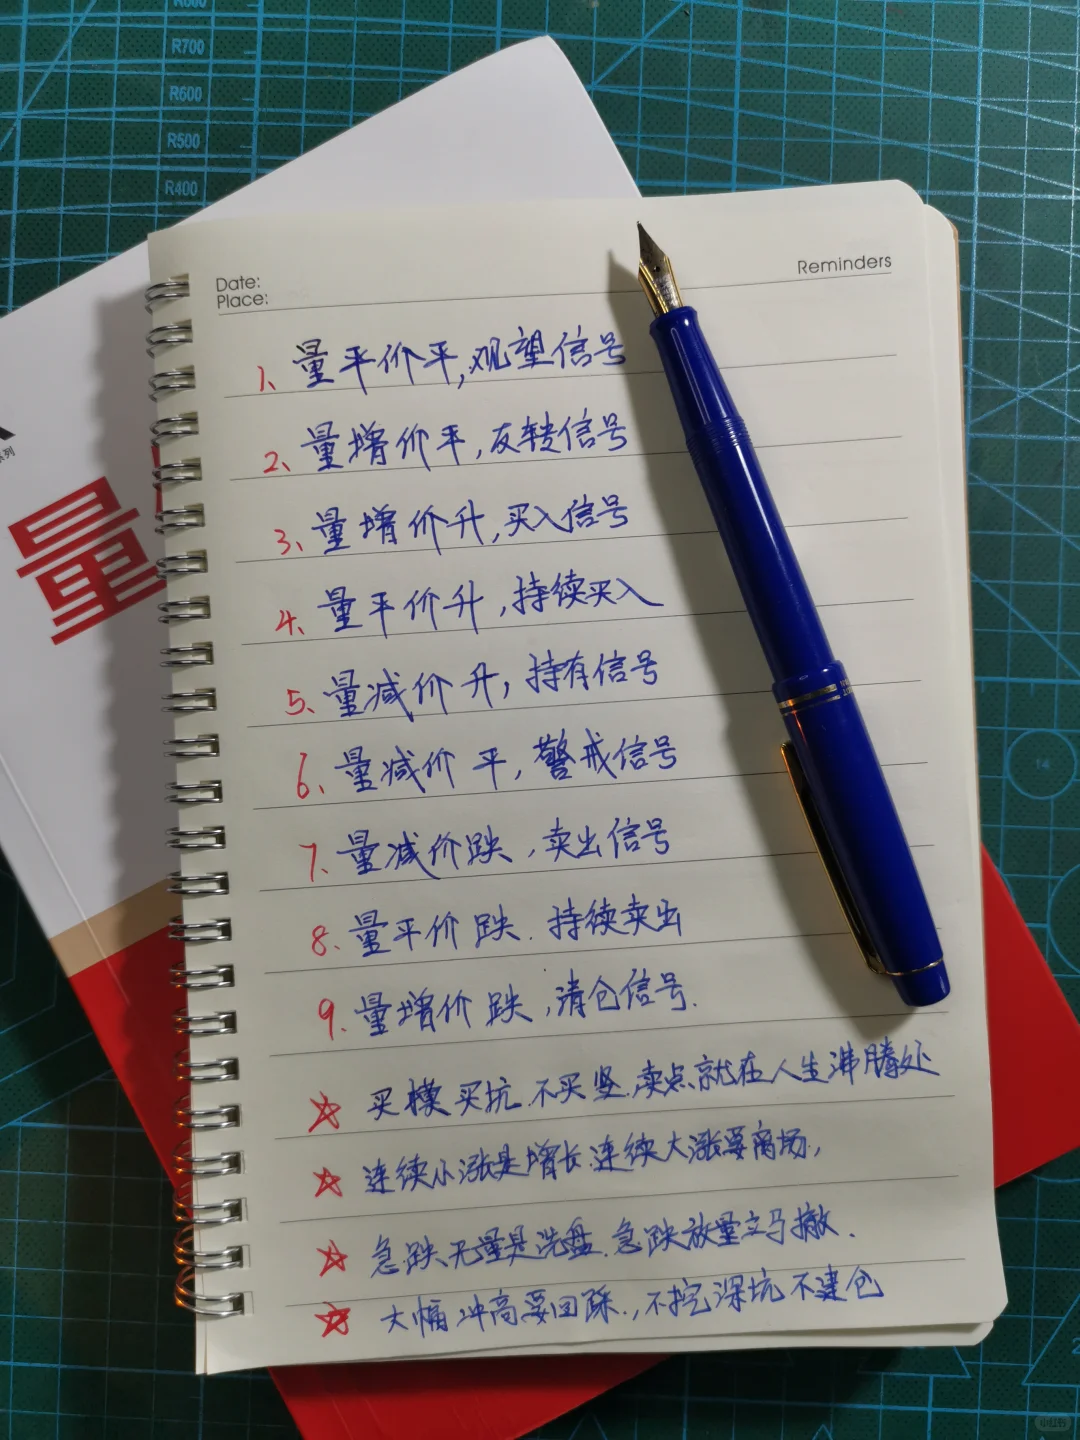 R600
R700
R600
R500
R400
Date:
Place:
Reminders
系列
量
1、量平价平,观望信号
2、量增价平,反转信号
3、量增价升,买入信号
4、量平价升,持续买入
5、量减价升,持有信号
6、量减价平,警戒信号
7、量减价跌,卖出信号
8、量平价跌.持续卖出
9.量增价跌,清仓信号.
☆ 买横买坑.不买竖.卖点就在人生沸腾处
☆ 连续小涨是增长.连续大涨要离场,
☆ 急跌无量是洗盘.急跌放量立马撤.
☆ 大幅冲高要回踩.,不挖深坑不建仓
14
小红书